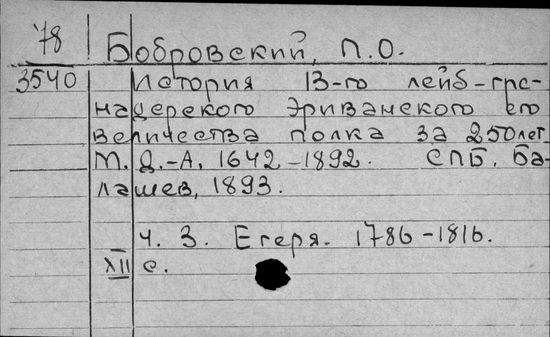 78
Бобровский, П.О.
3540
История 13-го лейб-гре-
надерского Эриванского его
величества полка за 250 лет.
Т. Д.-А, 1642-1892. СПБ, Ба-
лашев, 1893.
Ч. 3. Егеря. 1786-1816.
XII с.